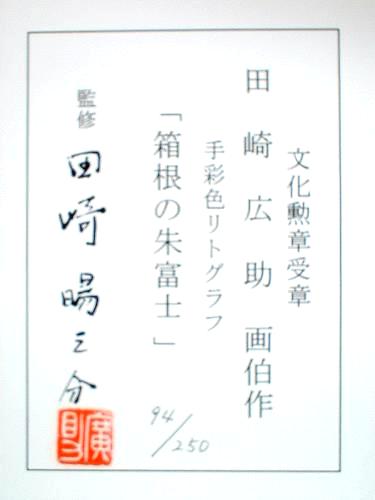 文化勲章受章
田崎広助 画伯作
手彩色リトグラフ
「箱根の朱富士」
94/250
監修 田崎暘之介
廣助